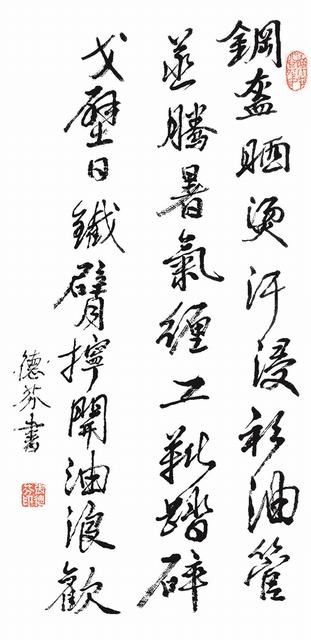 鋼盔晒燙汗浸衫油管
蒸騰暑氣纏工靴踏碎
戈壁日鐵臂擰開油浪歡
德芬書